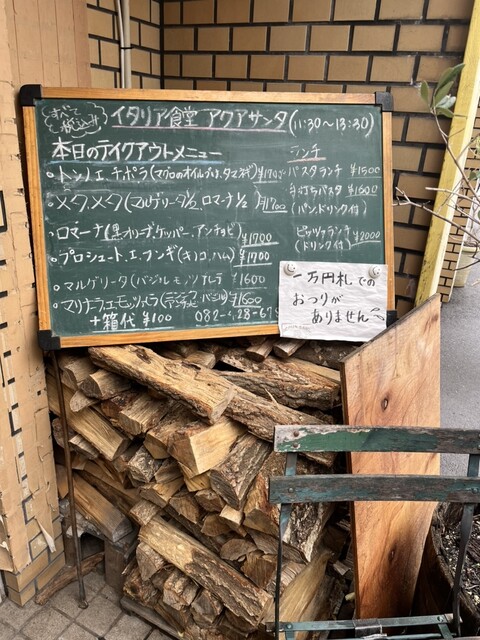 すべて税込!!
イタリア食堂 アクアサンタ (11:30〜13:30)
本日のテイクアウトメニュー
・トンノ エ チポラ(マグロのオイルづけ、タマネギ) ¥1700
・メタ、メタ (マルゲリータ1/2、ロマーナ1/2 ¥1700
・ロマーナ (黒オリーブ、ケッパー、アンチョビ) ¥1700
・プロシュート エ フンギ(キノコ、ハム) ¥1700
・マルゲリータ (バジル モッツァレラ ¥1600
・マリナーラ エ モッツァレラ ¥1600
+箱代 ¥100
ランチ
パスタランチ ¥1500
手打ちパスタ ¥1600
(パン、ドリンク付)
ピッツァランチ ¥2000
(ドリンク付)
一万円札での
おつりが
ありません